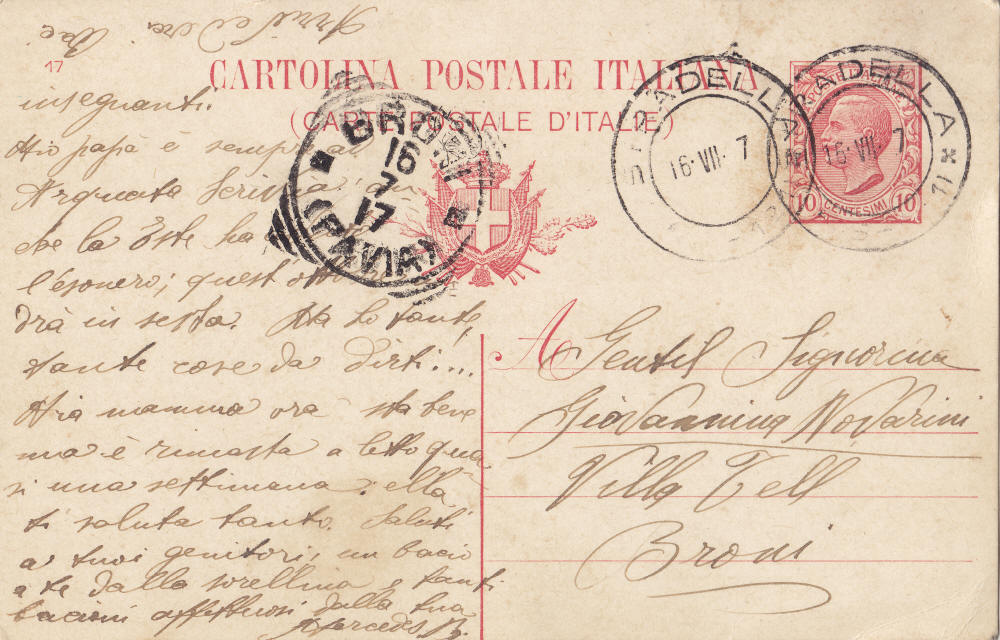 17
CARTOLINA POSTALE ITALIANA
(CARTE POSTALE D'ITALIE)
BRONI
16
7
17
(PAVIA)
STRADELLA
16·VII· 7
STRADELLA
16·VII· 7
10 CENTESIMI 10
insegnanti.
Mio papà è sempre ad
Arquata Scrivia; an
che la Este ha
l'esonero; quest'ott
drà in sesta. Ma ho tante,
tante cose da dirti....
Mia mamma ora sta bene
ma è rimasta a letto qua
si una settimana; ella
ti saluta tanto. Saluti
a tuoi genitori, un bacio
a te dalla sorellina e tanti
bacioni affettuosi dalla tua
Mercedes B.
A Gentil Signorina
Giovannina Novarini
Villa Tell
Broni